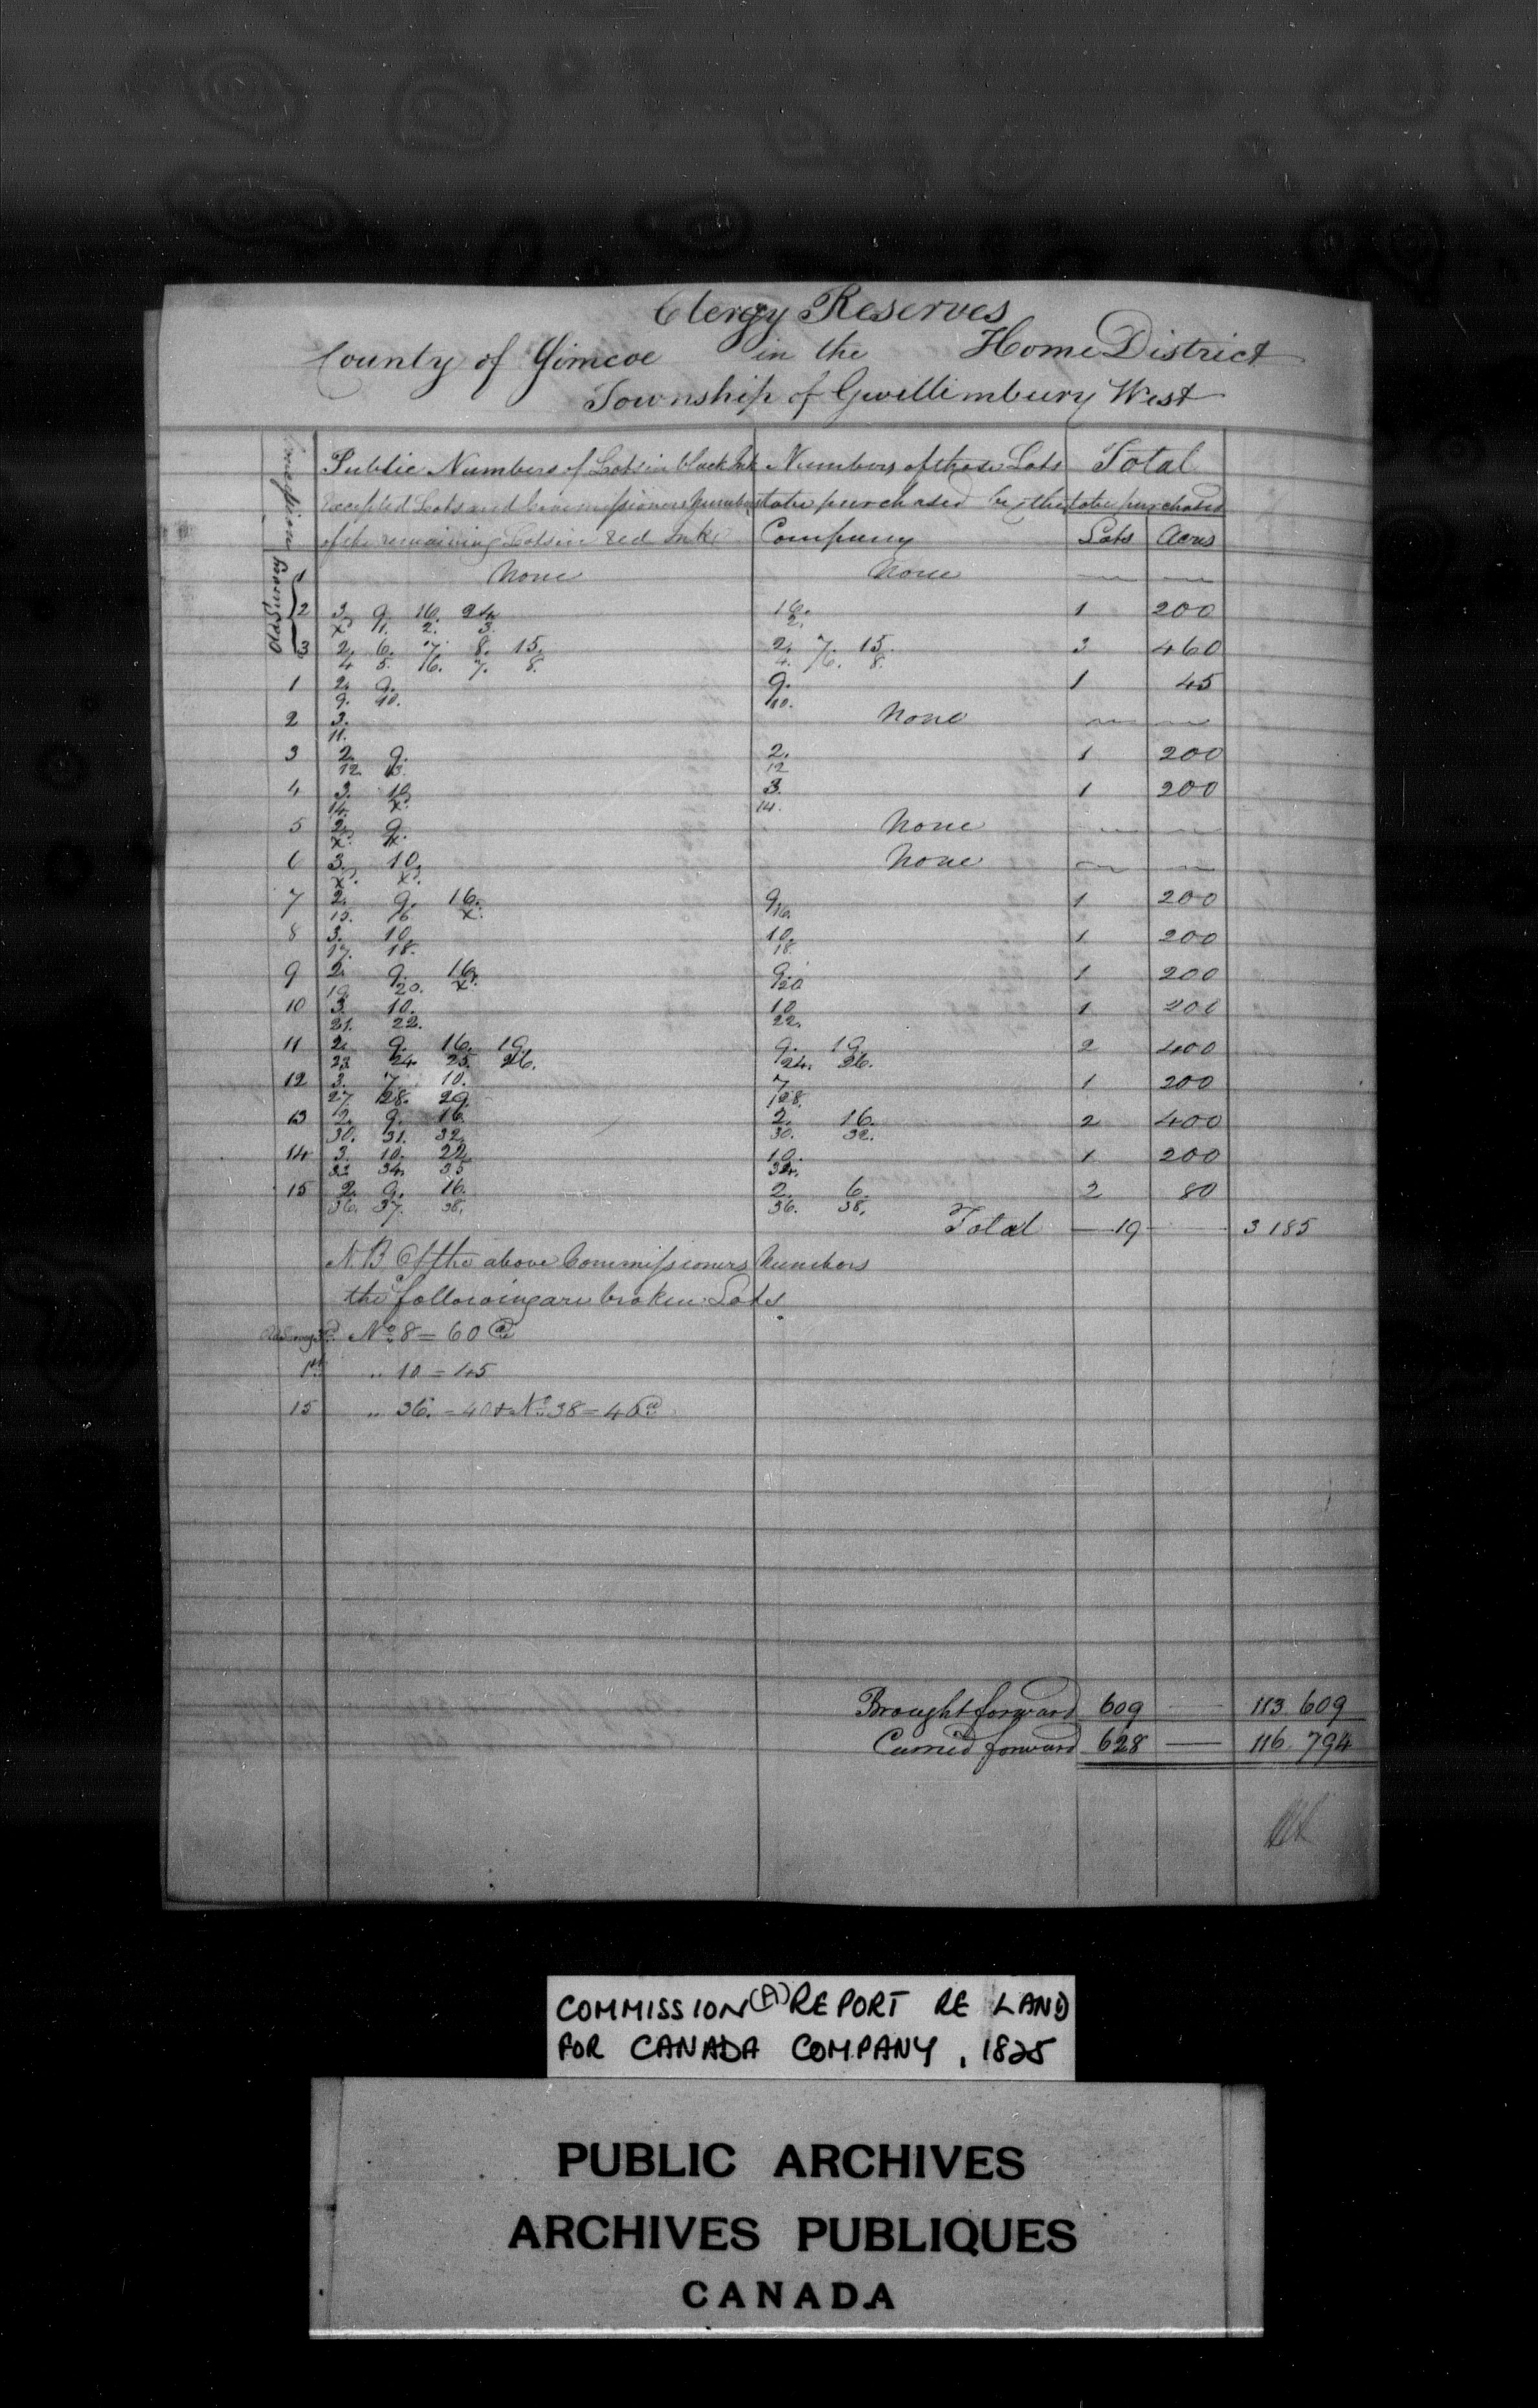 Clergy Reserves
County of Simcoe in the Home District
Township of Gwillimbury West
Concession Public Numbers of Lots in black Ink Numbers of those Lots Total
excepted Lots and Commissioners Numbers to be purchased by the to be purchased
of the remaining Lots in red Ink Company Lots Acres
Old Survey
1 None None — —
2 3. 9. 16. 24. 16. 1 200
x 1. 2. 3. 2.
3 2. 6. 7. 8. 15. 2. 7. 15. 3 460
4 5. 6. 7. 8. 4. 6. 8.
1 2. 9. 9. 1 45
9. 10. 10.
2 3. None — —
11.
3 2. 9. 2. 1 200
12. 13. 12
4 3. 10. 3. 1 200
14. x. 14.
5 2. 9. None — —
x. x.
6 3. 10. None — —
x. x.
7 2. 9. 16. 9. 1 200
15. 16 x. 16.
8 3. 10. 10. 1 200
17. 18. 18.
9 2. 9. 16. 9. 1 200
19. 20. x. 20
10 3. 10. 10 1 200
21. 22. 22.
11 2. 9. 16. 19. 9. 19. 2 400
23 24. 25. 26. 24. 26.
12 3. 7. 10. 7. 1 200
27. 28. 29. 28.
13 2. 9. 16. 2. 16. 2 400
30. 31. 32. 30. 32.
14 3. 10. 22. 10. 1 200
33 34. 35 34.
15 2. 9. 16. 2. 6. 2 80
36. 37. 38. 36. 38.
Total — 19 — 3 185
N.B. Of the above Commissioners Numbers
the following are broken Lots
No. 8 = 60
1st " 10 = 45
15 " 36. = 40 & No. 38 = 40
Brought forward 609 — 113 609
Carried forward 628 — 116 794
COMMISSION (A) REPORT RE LAND
FOR CANADA COMPANY, 1825
PUBLIC ARCHIVES
ARCHIVES PUBLIQUES
CANADA